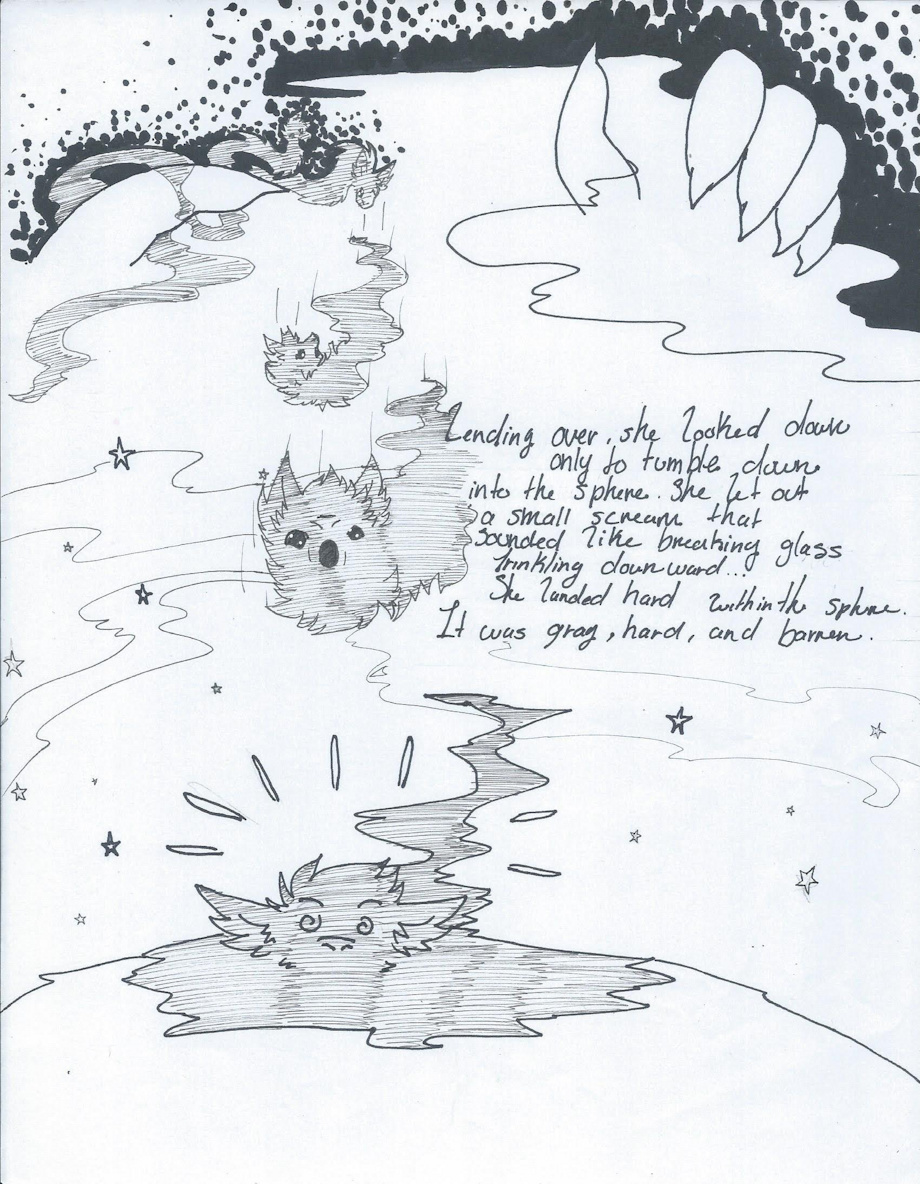 Lending over, she looked down
only to tumble down
into the sphere. She let out
a small scream that
sounded like breaking glass
trinkling downward...
She landed hard within the sphere.
It was gray, hard, and barren.